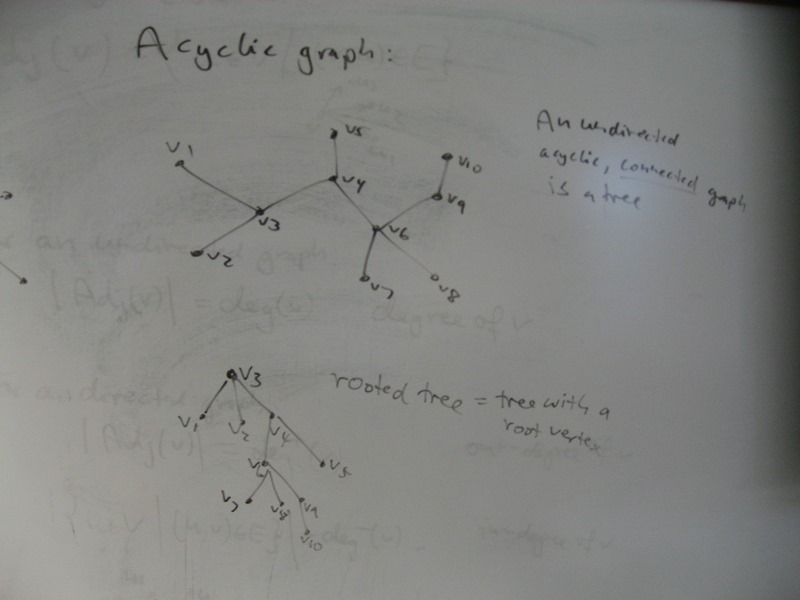 Acyclic graph:
v1
v5
v10
v4
v9
v3
v6
v2
v7
v8
An undirected
acyclic, connected graph
is a tree
or an undirected graph
|Adj(v)| = deg(v) degree of v
v3
rooted tree = tree with a
root vertex
v1
v2
v4
v6
v5
v7
v8
v9
v10
|Adj(v)| =